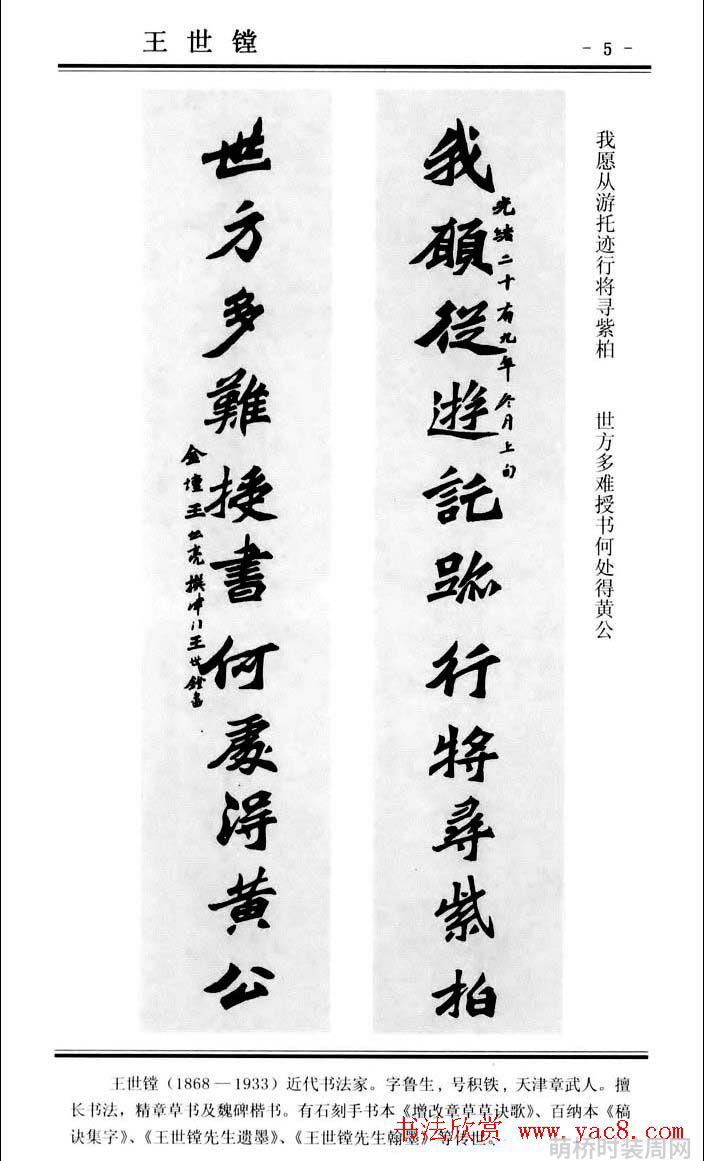 王世镗
- 5 -
我愿从游托迹行将寻紫柏 世方多难授书何处得黄公
我願從遊託跡行將尋紫柏
光緒二十有九年冬月上旬
世方多難授書何處得黄公
金壇王 亮撰 王世鏜書
王世镗（1868—1933）近代书法家。字鲁生，号积铁，天津章武人。擅
长书法，精章草书及魏碑楷书。有石刻手书本《增改章草草诀歌》、百纳本《稿
诀集字》、《王世镗先生遗墨》、《王世镗先生翰墨》等传世。
书法欣赏 www.yac8.com
萌桥时装周网